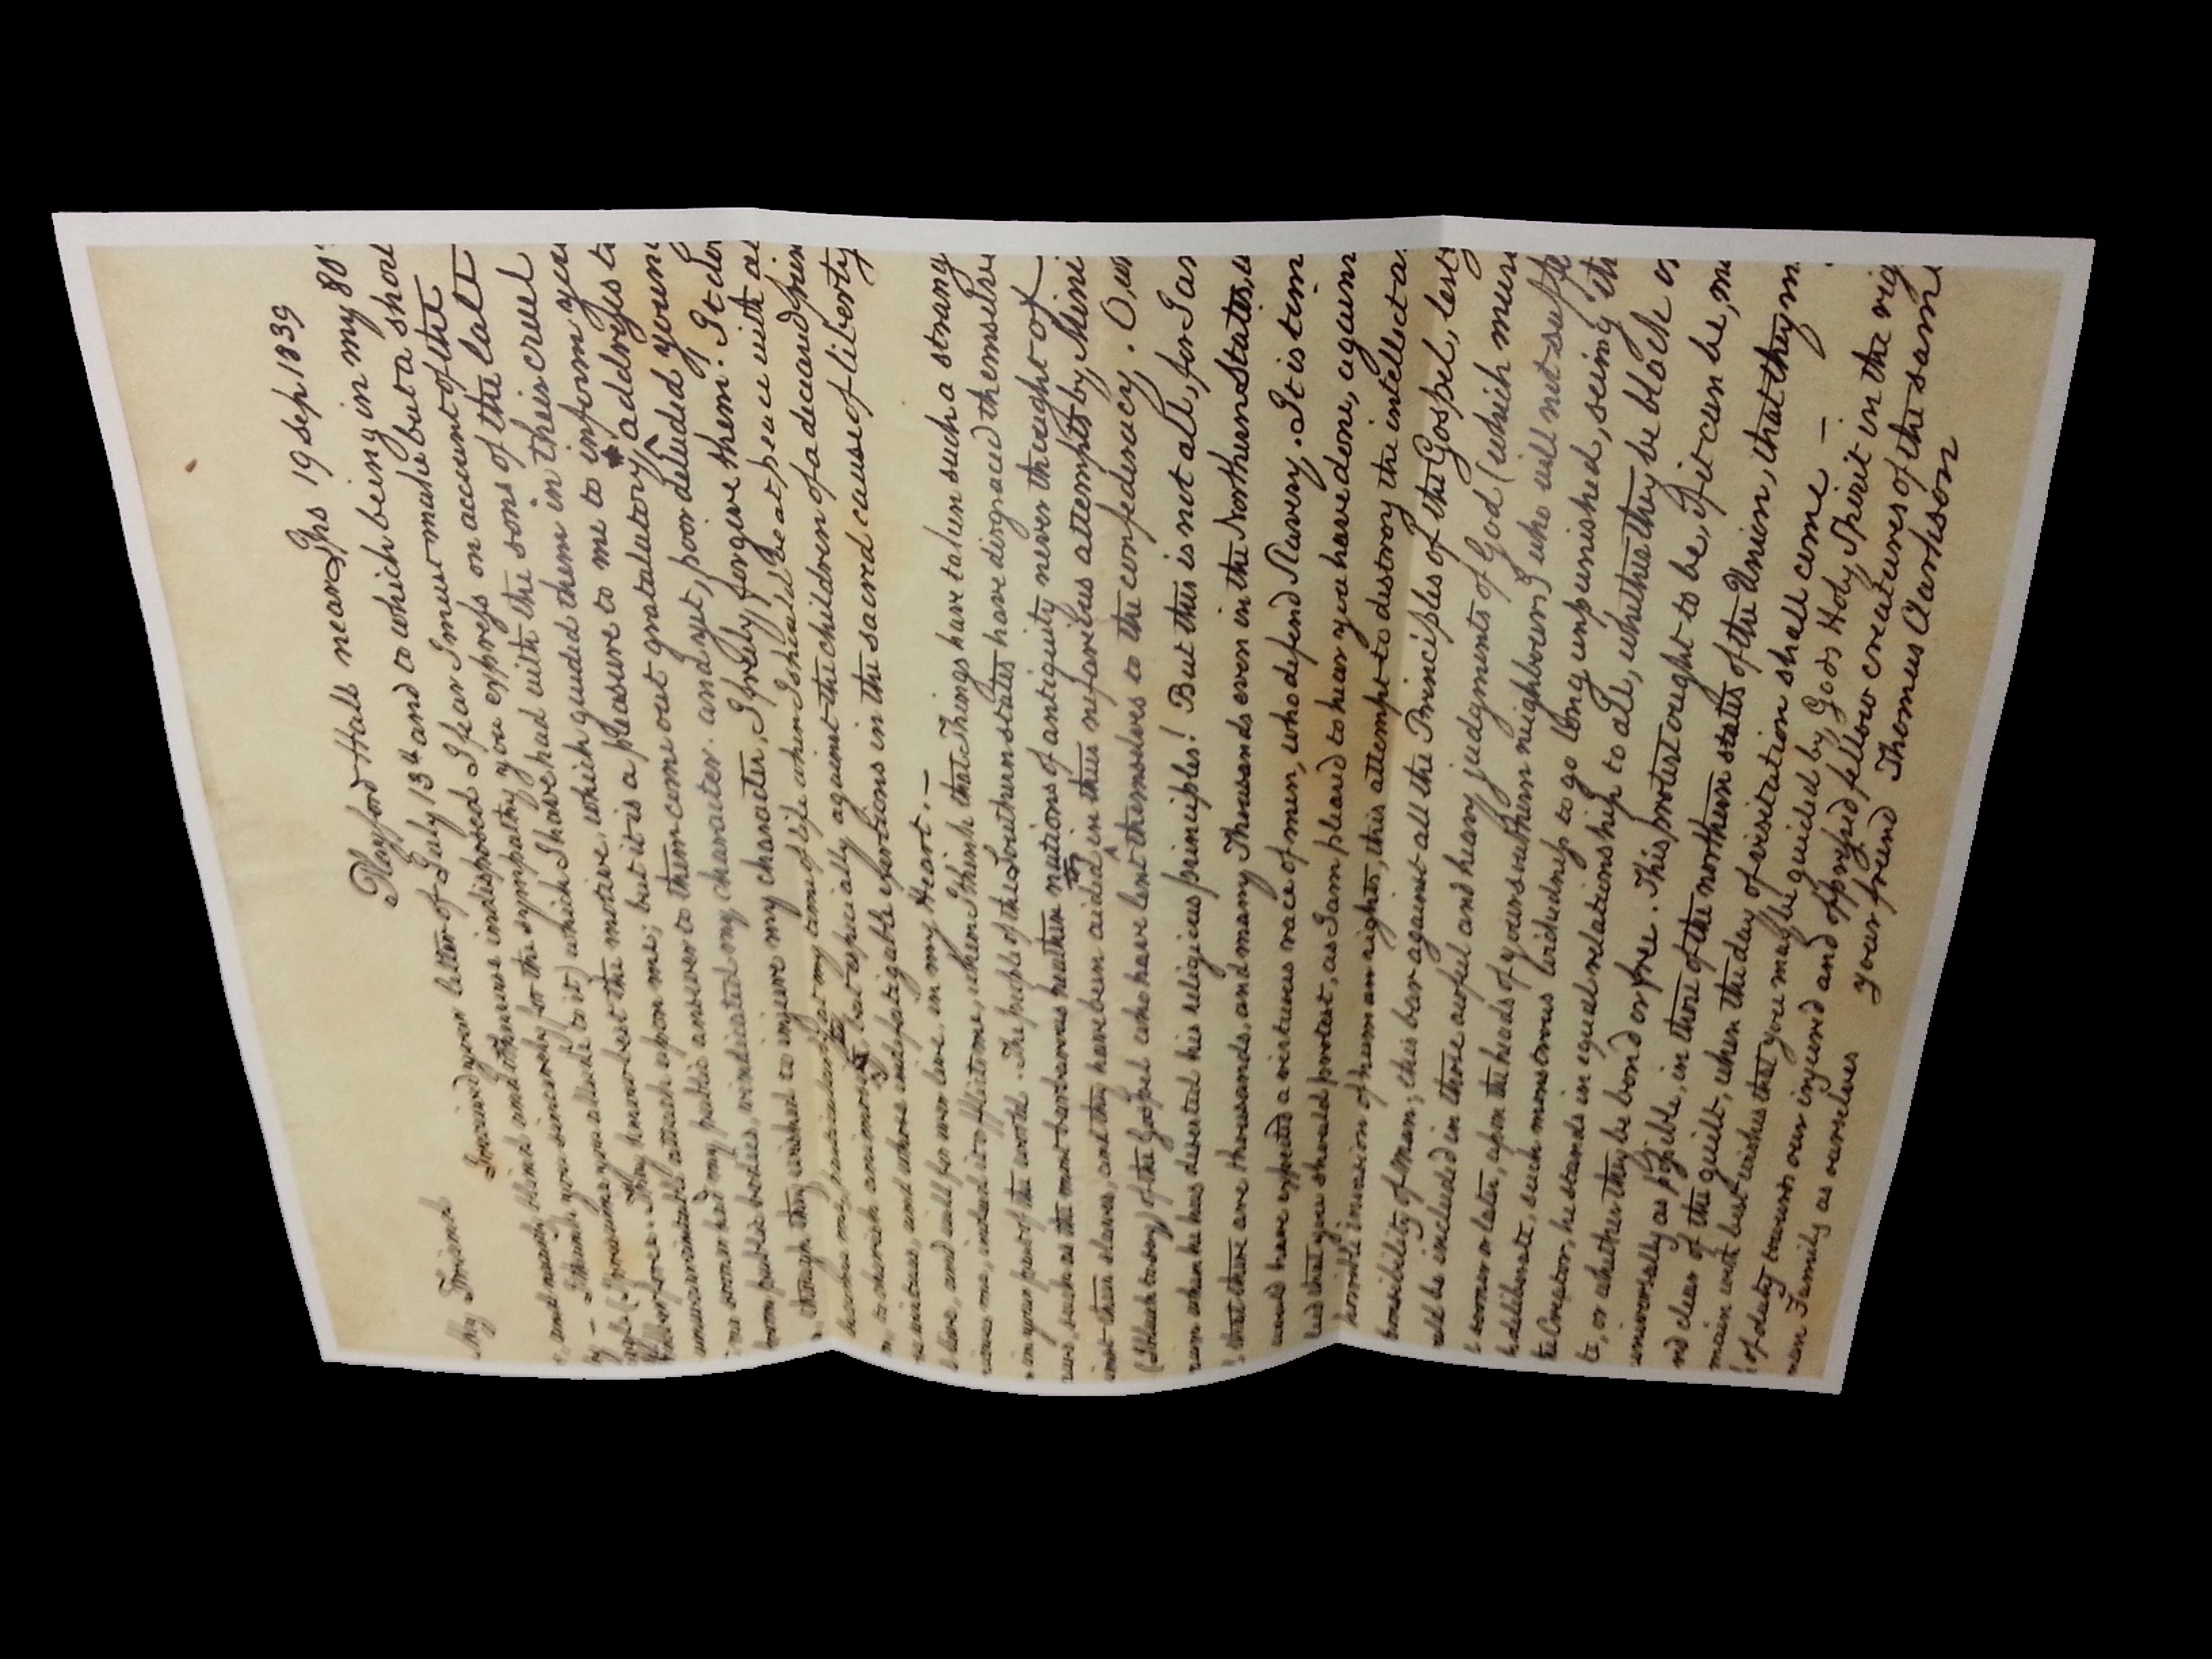 Playford Hall near Ips 19 Sep. 1839
My Friend
I received your letter of July 13th and to which being in my 80
and nearly blind and otherwise indisposed I fear I must make but a short
I thank you sincerely for the sympathy you express on account of the
I presume you allude to it) which I have had with the sons of the late
Wilberforce. They know best the motive, which guided them in their cruel
unwarrantable attack upon me; but it is a pleasure to me to inform you
no sooner had my public answer to them come out gratulatory addresses
from public bodies, vindicated my character. and yet, poor deluded young
though they wished to injure my character, I freely forgive them. It
particularly at my time of life when I should be at peace with
to cherish animosity but especially against the children of a deceased
virtues, and whose indefatigable exertions in the sacred cause of liberty
love, and will for ever live, in my Heart. —
me, indeed it afflicts me, when I think that Things have taken such a
in your part of the world. The people of the Southern states have disgraced themselves
such as the most barbarous heathen nations of antiquity never thought of
their slaves, and they have been aided in their nefarious attempts by
of the Gospel who have lent themselves to the confederacy. O,
when he has deserted his religious principles! But this is not all, for I
that there are thousands, and many Thousands even in the Northern States,
would have expected a virtuous race of men, who defend Slavery. It is
that you should protest, as I am pleased to hear you have done,
horrible invasion of human rights, this attempt to destroy the intellect
of man; this bar against all the Principles of the Gospel, lest
be included in those awful and heavy judgments of God (which must
sooner or later, upon the heads of your southern neighbours) who will not
deliberate, such monstrous wickedness to go long unpunished, seeing
the Creator, he stands in equal relationship to all, whether they be black or
or whether they be bond or free. This protest ought to be, if it can be,
universally as possible, in those of the northern states of the Union, that they
clear of the guilt, when the day of visitation shall come —
remain with best wishes that you may be guided by God's Holy Spirit in the
of duty towards our injured and oppressed fellow creatures of the same
Family as ourselves
your friend Thomas Clarkson